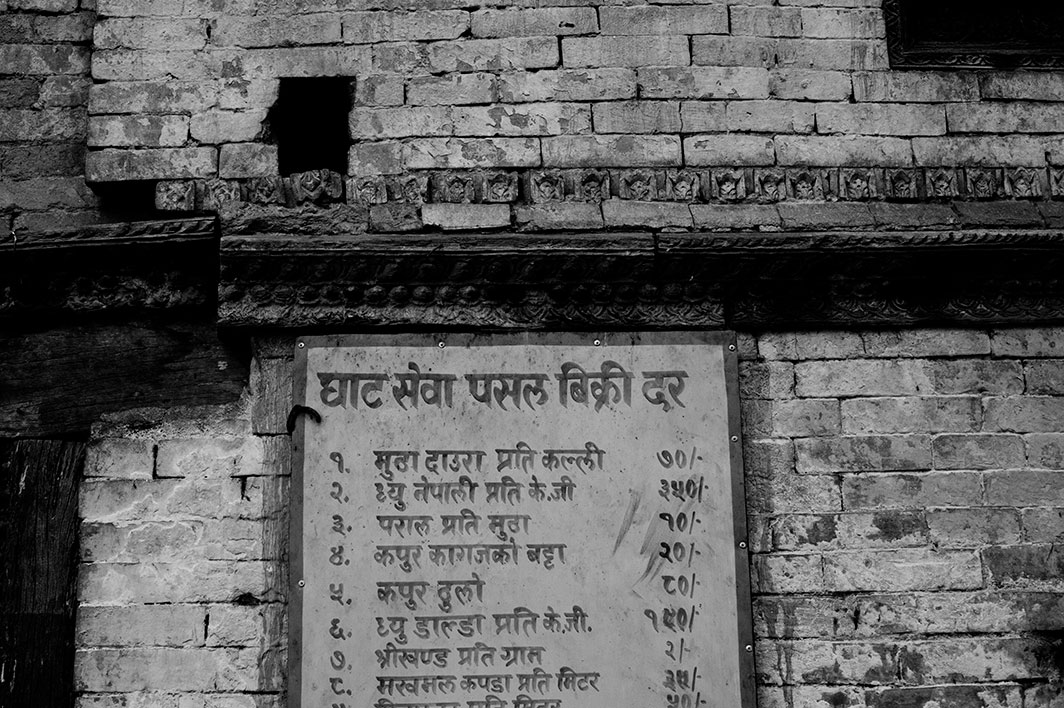 घाट सेवा पसल बिक्री दर
१. मुठा दाउरा प्रति कल्ली ७०/-
२. घ्यु नेपाली प्रति के.जी ३५०/-
३. पराल प्रति मुठा १०/-
४. कपुर कागजको बट्टा २०/-
५. कपुर ठुलो ८०/-
६. घ्यु डाल्डा प्रति के.जी. १५०/-
७. श्रीखण्ड प्रति ग्राम २/-
८. मखमल कपडा प्रति मिटर ३५/-
प्रति मिटर ५०/-